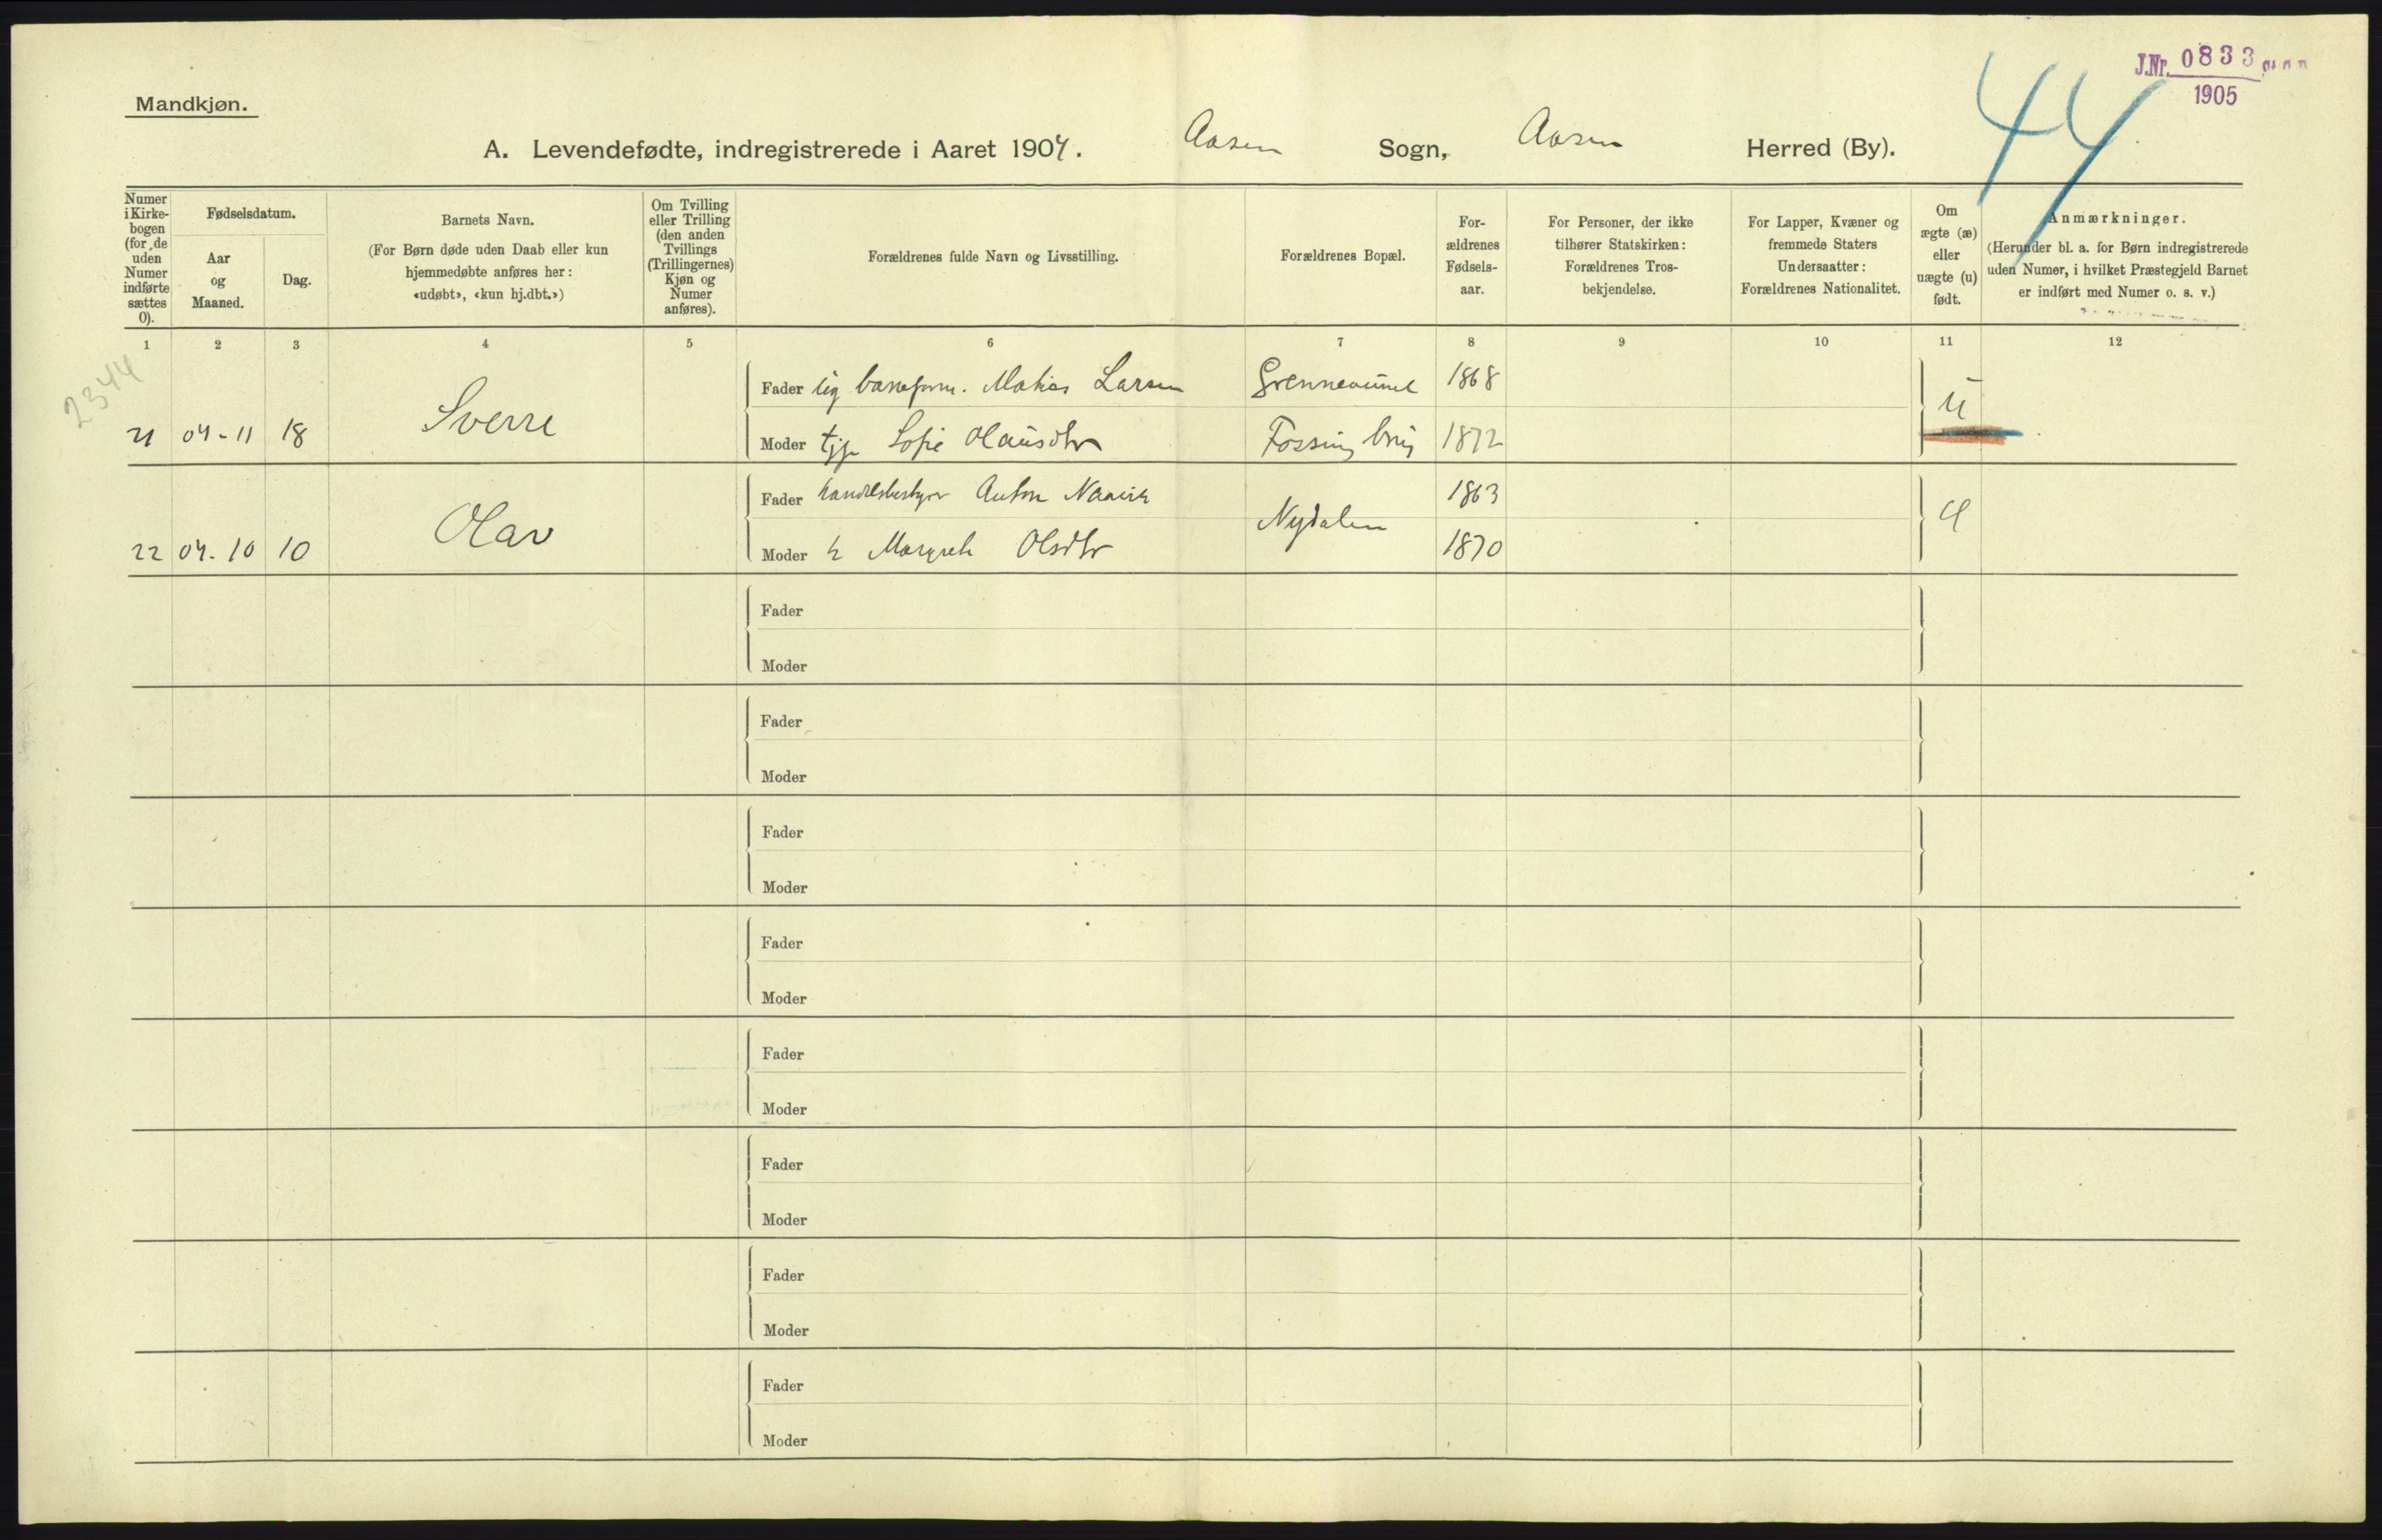 J.Nr. 0833
1905
44
Mandkjøn.
A. Levendefødte, indregistrerede i Aaret 1904. Aasen Sogn, Aasen Herred (By).
Numer i Kirke-bogen (for de uden Numer indførte sættes 0).
Fødselsdatum.
Aar og Maaned.
Dag.
Barnets Navn.
(For Børn døde uden Daab eller kun
hjemmedøbte anføres her:
«udøbt», «kun hj.dbt.»)
Om Tvilling
eller Trilling
(den anden
Tvillings
(Trillingernes)
Kjøn og
Numer
anføres).
Forældrenes fulde Navn og Livsstilling.
Forældrenes Bopæl.
For-
ældrenes
Fødsels-
aar.
For Personer, der ikke
tilhører Statskirken:
Forældrenes Tros-
bekjendelse.
For Lapper, Kvæner og
fremmede Staters
Undersaatter:
Forældrenes Nationalitet.
Om
ægte (æ)
eller
uægte (u)
født.
Anmærkninger.
(Herunder bl. a. for Børn indregistrerede
uden Numer, i hvilket Præstegjeld Barnet
er indført med Numer o. s. v.)
1 2 3 4 5 6 7 8 9 10 11 12
2344
Fader Larsen 1868
21 04-11 18 Sverre u
Moder tjp Sofie Olausdtr 1872
Fader Anton 1863
22 04-10 10 Olav Nydalen
Moder Olsdtr 1870
Fader
Moder
Fader
Moder
Fader
Moder
Fader
Moder
Fader
Moder
Fader
Moder
Fader
Moder
Fader
Moder